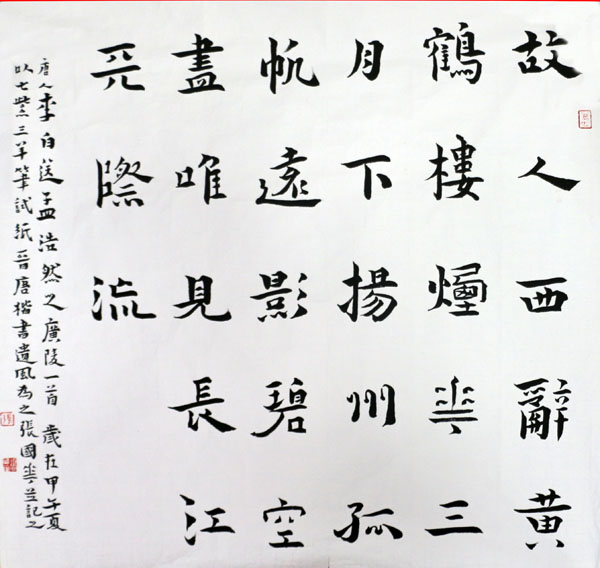 故人西辭黃
鶴樓煙華三
月下揚州孤
帆遠影碧空
盡唯見長江
天際流
唐人李白送孟浩然之廣陵一首 歲在甲午夏
以七紫三羊筆試紙晉唐楷書遺風為之張國華並記之